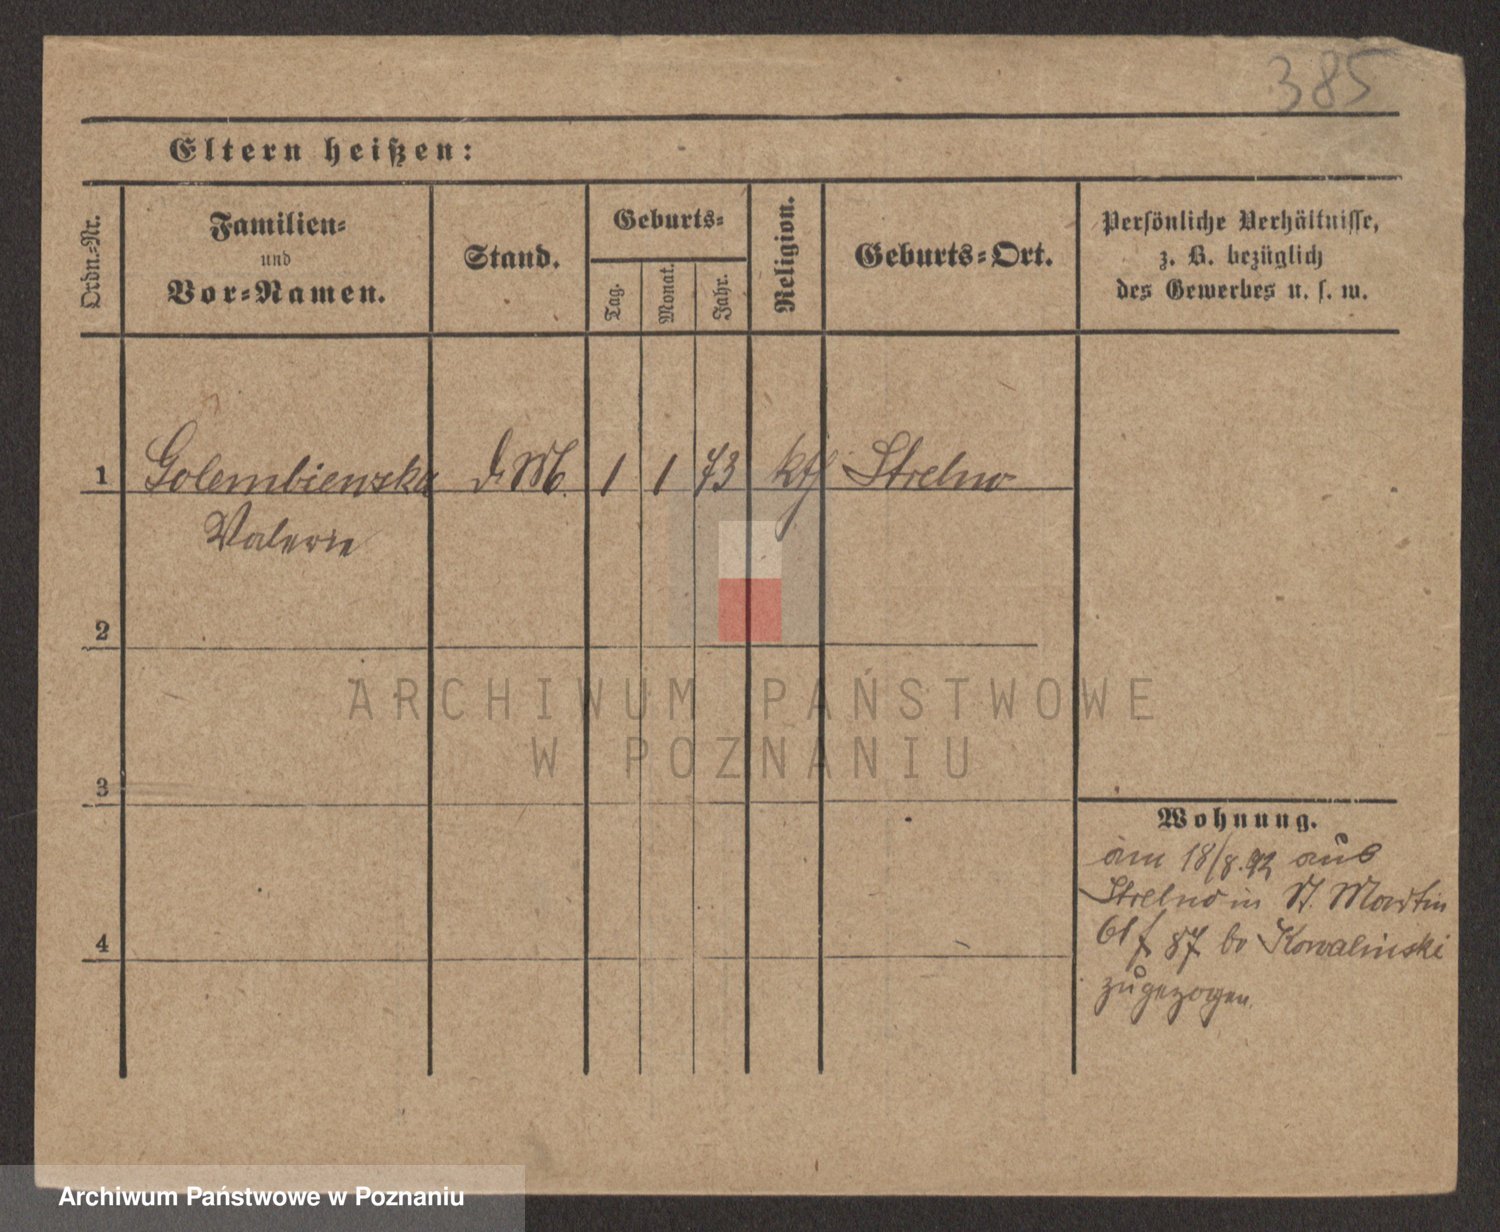 385
Eltern heißen:
Ordn.-Nr.
Familien-
und
Vor-Namen.
Stand.
Geburts-
Tag.
Monat.
Jahr.
Religion.
Geburts-Ort.
Persönliche Verhältnisse,
z. B. bezüglich
des Gewerbes u. s. w.
1 Golembiewska d. M. 1 1 73 kth Strelno
Valerie
2
ARCHIWUM PAŃSTWOWE
W POZNANIU
3
Wohnung.
am 18/8.92 aus
Strelno in St. Martin
61 f 87 bo Kowalinski
zugezogen.
4
Archiwum Państwowe w Poznaniu